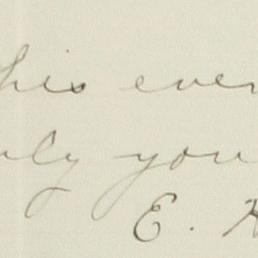 his even
uly you
E. H